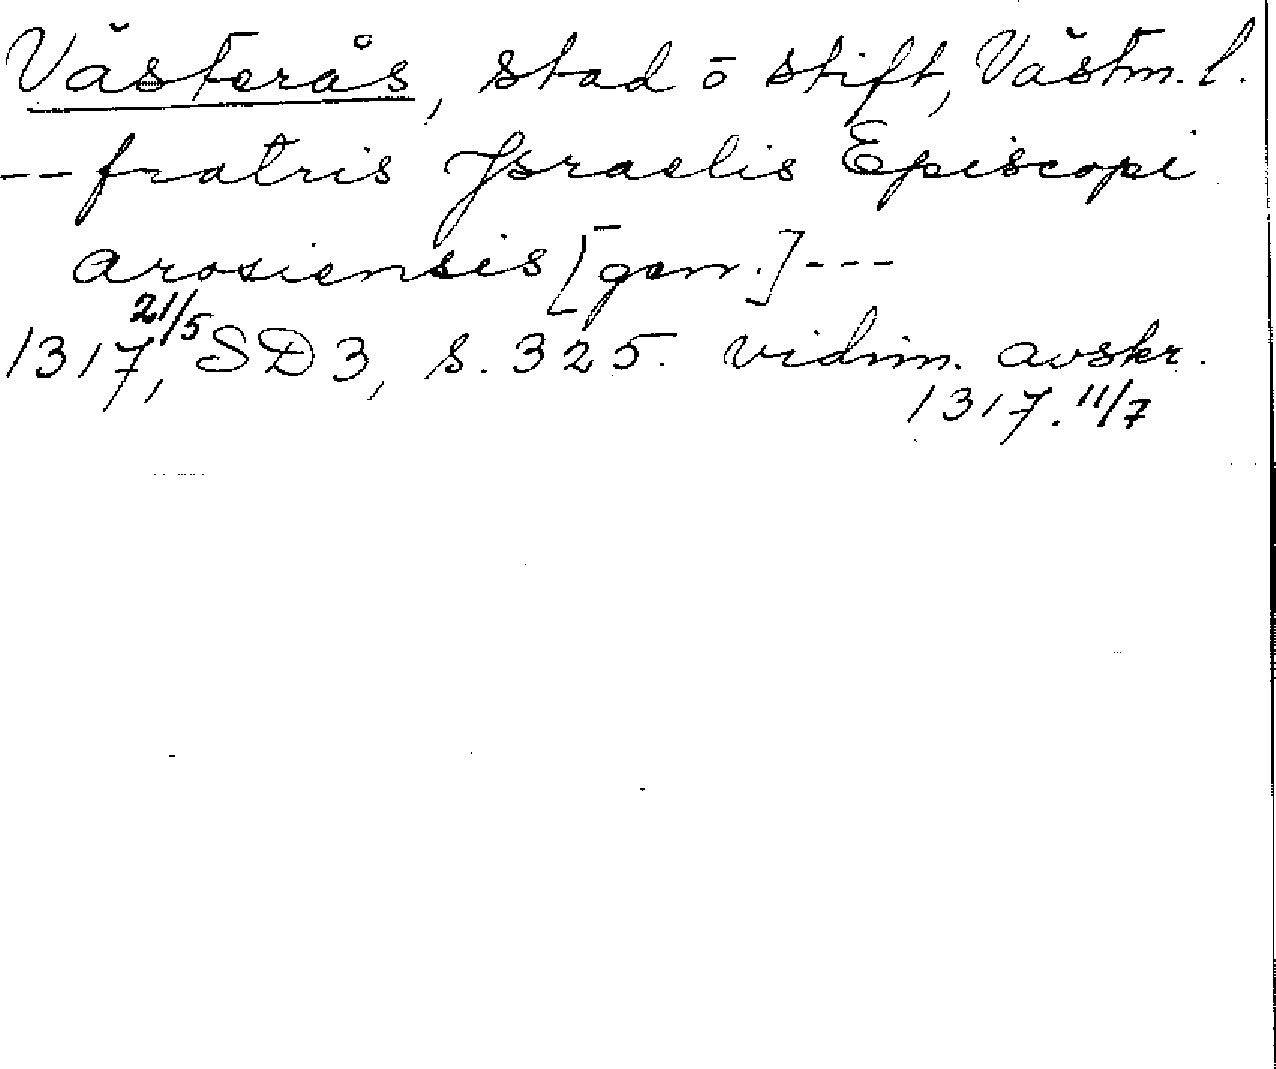 Västerås, stad ō stift, Västm. l.
-- fratris Jsraelis Episcopi
arosiensis [gen.] ---
1317 21/5, SD 3, s. 325. vidim. avskr.
1317. 11/7